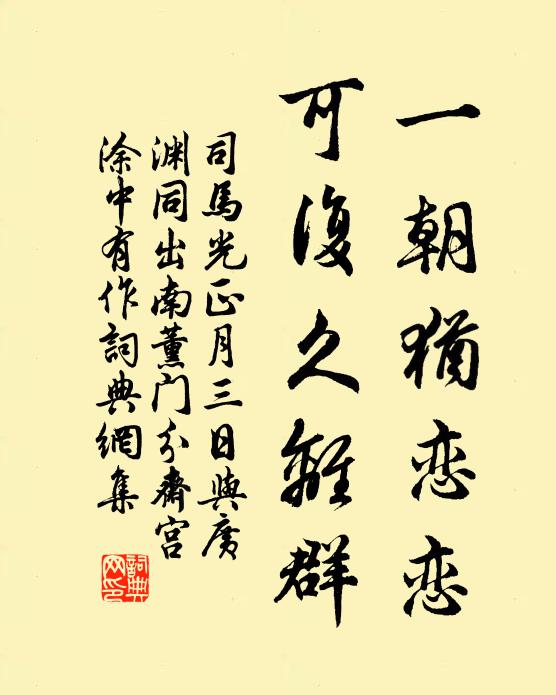 一朝猶恋恋
可復久離群
司馬光正月三日與廣
淵同出南薰门分齋宫
涂中有作詞典網集
詞典网印